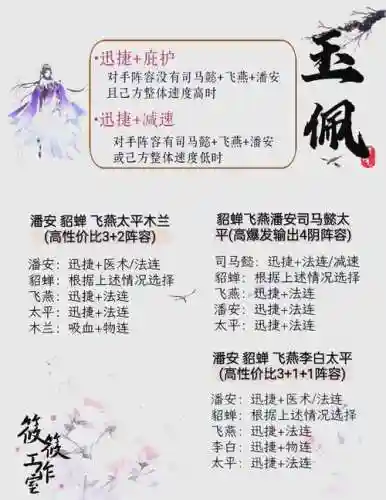 玉佩
·迅捷+庇护
对手阵容没有司马懿+飞燕+潘安
且己方整体速度高时
·迅捷+减速
对手阵容有司马懿+飞燕+潘安
或己方整体速度低时
潘安 貂蝉 飞燕太平木兰
(高性价比3+2阵容)
潘安：迅捷+医术/法连
貂蝉：根据上述情况选择
飞燕：迅捷+法连
太平：迅捷+法连
木兰：吸血+物连
貂蝉飞燕潘安司马懿太
平(高爆发输出4阴阵容)
司马懿：迅捷+法连/减速
貂蝉：根据上述情况选择
飞燕：迅捷+法连
潘安：迅捷+法连
太平：迅捷+法连
潘安 貂蝉 飞燕李白太平
(高性价比3+1+1阵容)
潘安：迅捷+医术/法连
貂蝉：根据上述情况选择
飞燕：迅捷+法连
李白：迅捷+物连
太平：迅捷+法连
筱筱工作室